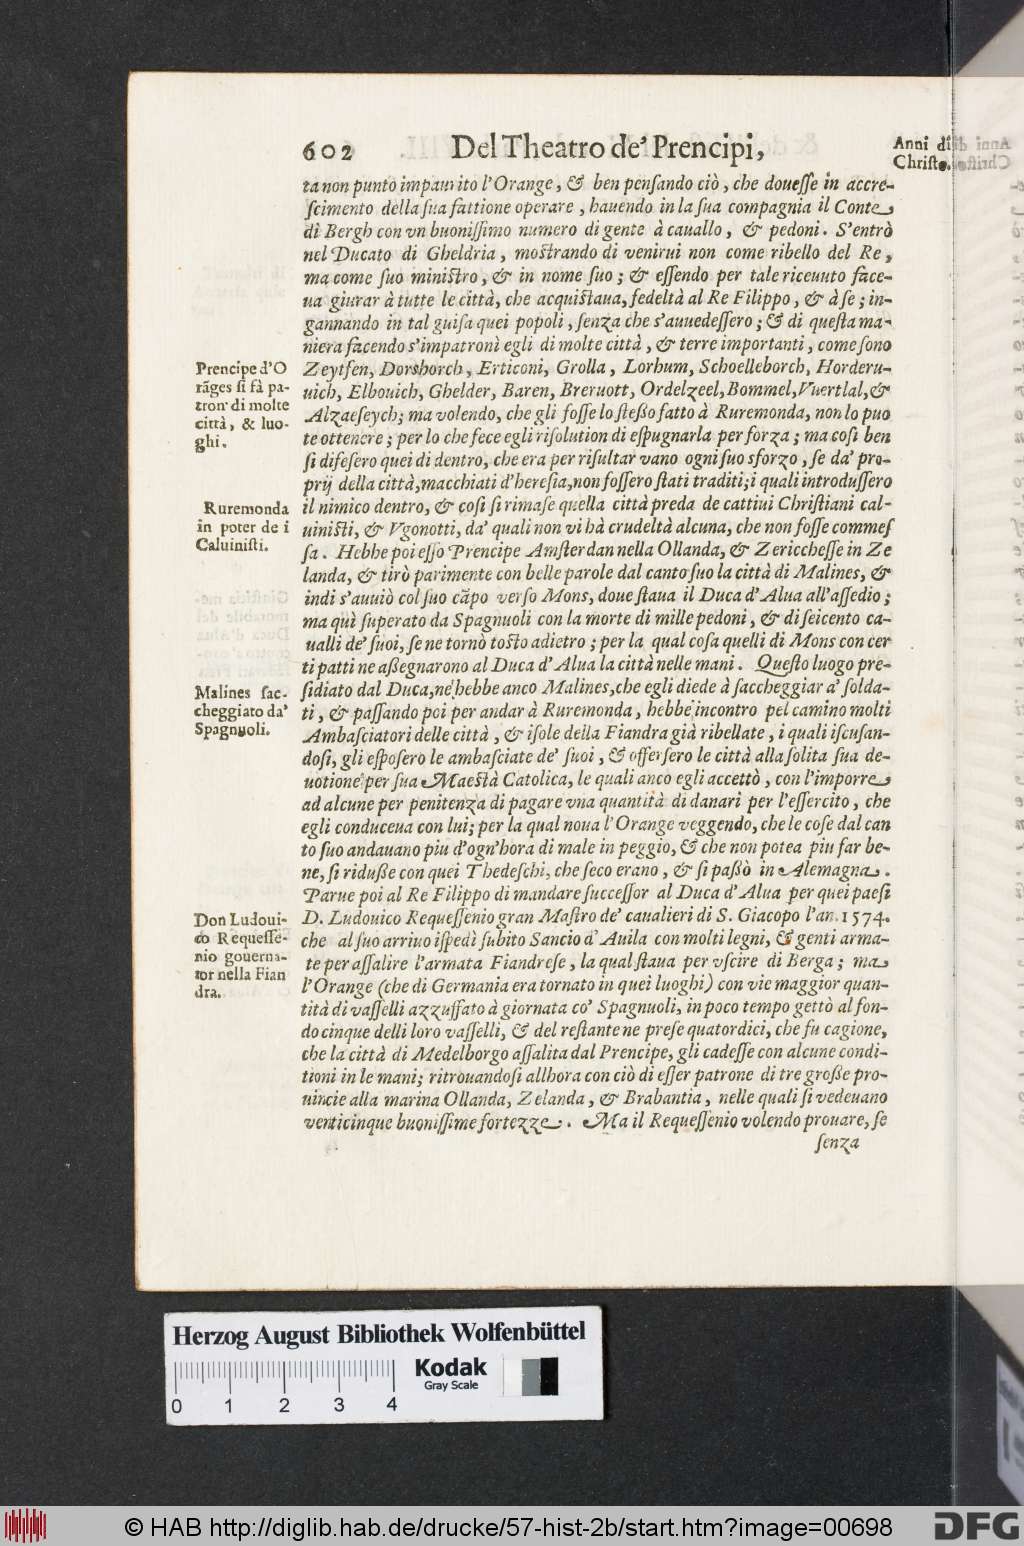 602 Del Theatro de' Prencipi,
Anni di
Christo.
ta non punto impaurito l'Orange, & ben pensando ciò, che douesse in accre-
scimento della sua fattione operare, hauendo in la sua compagnia il Conte
di Bergh con vn buonissimo numero di gente à cauallo, & pedoni. S'entrò
nel Ducato di Gheldria, mostrando di venirui non come ribello del Re,
ma come suo ministro, & in nome suo; & essendo per tale riceuuto face-
ua giurar à tutte le città, che acquistaua, fedeltà al Re Filippo, & à se; in-
gannando in tal guisa quei popoli, senza che s'auuedessero; & di questa ma-
niera facendo s'impatronì egli di molte città, & terre importanti, come sono
Prencipe d'O
rãges si fà pa-
tron di molte
città, & luo-
ghi.
Zeytfen, Dorshorch, Erticoni, Grolla, Lorhum, Schoelleborch, Horderu-
uich, Elbouich, Ghelder, Baren, Breruott, Ordelzeel, Bommel, Vuertlal, &
Alzaeseych; ma volendo, che gli fosse lo steßo fatto à Ruremonda, non lo puo
te ottenere; per lo che fece egli risolution di espugnarla per forza; ma cosi ben
si difesero quei di dentro, che era per risultar vano ogni suo sforzo, se da' pro-
prij della città, macchiati d'heresia, non fossero stati traditi; i quali introdussero
Ruremonda
in poter de i
Caluinisti.
il nimico dentro, & cosi si rimase quella città preda de cattiui Christiani cal-
uinisti, & Vgonotti, da' quali non vi hà crudeltà alcuna, che non fosse commes
sa. Hebbe poi esso Prencipe Amsterdan nella Ollanda, & Zericchesse in Ze
landa, & tirò parimente con belle parole dal canto suo la città di Malines, &
indi s'auuiò col suo cãpo verso Mons, doue staua il Duca d'Alua all'assedio;
ma quì superato da Spagnuoli con la morte di mille pedoni, & di seicento ca-
ualli de' suoi, se ne tornò tosto adietro; per la qual cosa quelli di Mons con cer
ti patti ne aßegnarono al Duca d'Alua la città nelle mani. Questo luogo pre-
Malines sac-
cheggiato da'
Spagnuoli.
sidiato dal Duca, nè hebbe anco Malines, che egli diede à saccheggiar a' solda-
ti, & passando poi per andar à Ruremonda, hebbe incontro pel camino molti
Ambasciatori delle città, & isole della Fiandra già ribellate, i quali iscusan-
dosi, gli esposero le ambasciate de' suoi, & offersero le città alla solita sua de-
uotione per sua Maestà Catolica, le quali anco egli accettò, con l'imporre
ad alcune per penitenza di pagare vna quantità di danari per l'essercito, che
egli conduceua con lui; per la qual noua l'Orange veggendo, che le cose dal can
to suo andauano piu d'ogn'hora di male in peggio, & che non potea piu far be-
ne, si riduße con quei Thedeschi, che seco erano, & si paßò in Alemagna.
Parue poi al Re Filippo di mandare successor al Duca d'Alua per quei paesi
Don Ludoui-
co Requesse-
nio gouerna-
tor nella Fian
dra.
D. Ludouico Requessenio gran Mastro de' caualieri di S. Giacopo l'an. 1574.
che al suo arriuo ispedì subito Sancio d'Auila con molti legni, & genti arma-
te per assalire l'armata Fiandrese, la qual staua per vscire di Berga; ma
l'Orange (che di Germania era tornato in quei luoghi) con vie maggior quan-
tità di vasselli azzuffato à giornata co' Spagnuoli, in poco tempo gettò al fon-
do cinque delli loro vasselli, & del restante ne prese quatordici, che fu cagione,
che la città di Medelborgo assalita dal Prencipe, gli cadesse con alcune condi-
tioni in le mani; ritrouandosi allhora con ciò di esser patrone di tre große pro-
uincie alla marina Ollanda, Zelanda, & Brabantia, nelle quali si vedeuano
venticinque buonissime fortezze. Ma il Requessenio volendo prouare, se
senza
Herzog August Bibliothek Wolfenbüttel
Kodak
Gray Scale
0 1 2 3 4
© HAB http://diglib.hab.de/drucke/57-hist-2b/start.htm?image=00698
DFG